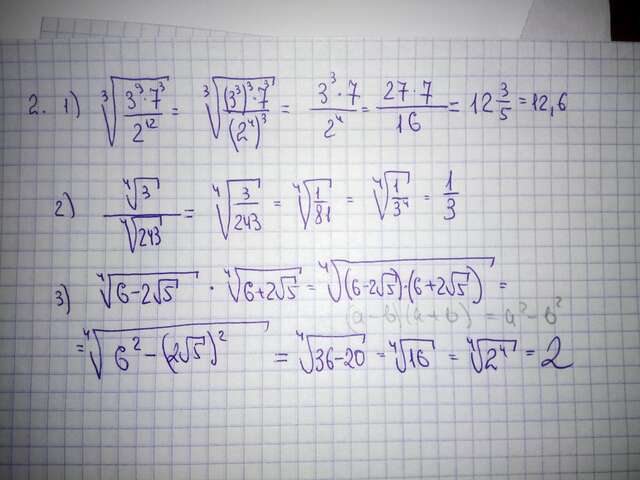 2. 1) ∛(3⁹·7³/2¹²) = ∛((3³)³·7³/(2⁴)³) = 3³·7/2⁴ = 27·7/16 = 12 3/5 = 12,6
2) ∜3/∜243 = ∜(3/243) = ∜(1/81) = ∜(1/3⁴) = 1/3
3) ∜(6-2√5) · ∜(6+2√5) = ∜((6-2√5)·(6+2√5)) =
(a-b)(a+b) = a²-b²
= ∜(6²-(2√5)²) = ∜(36-20) = ∜16 = ∜(2⁴) = 2